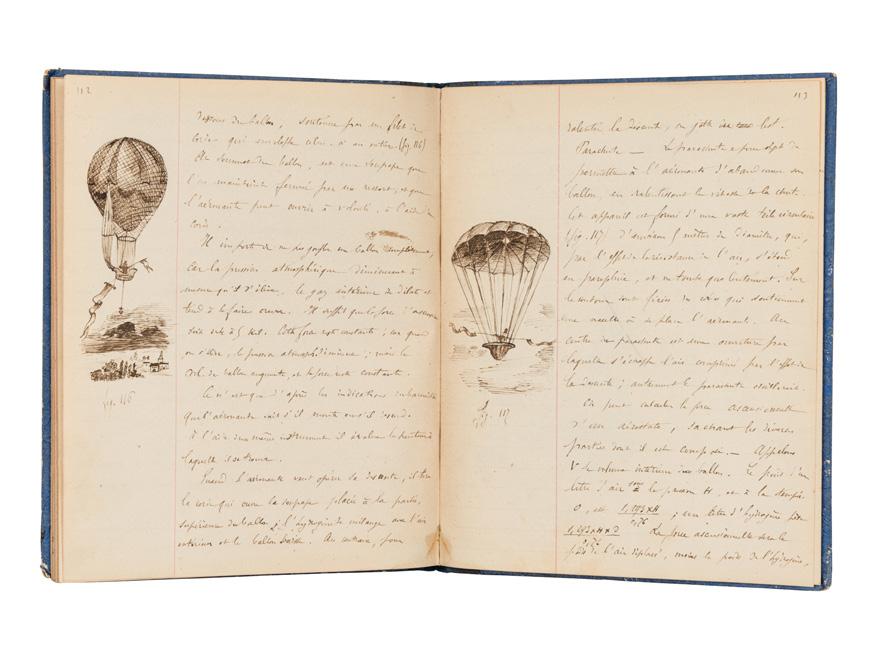 112
dessous du ballon, soutenue par un filet de
corde qui enveloppe celui-ci en entier (fig. 116)
Au sommet du ballon, est une soupape que
l'on maintient fermée par un ressort, et que
l'aéronaute peut ouvrir à volonté, à l'aide d'une
corde.
Il importe de ne pas gonfler un ballon complètement,
car la pression atmosphérique diminuant à
mesure qu'il s'élève, le gaz intérieur se dilate et
tend à le faire crever. Il suffit que la force d'ascension
soit de 4 à 5 kil. Cette force est constante ; car quand
on s'élève, la pression atmosph. diminue ; mais le
vol. du ballon augmente, et la force reste constante.
Ce n'est que d'après les indications du baromètre
que l'aéronaute sait s'il monte ou s'il descend.
À l'aide du même instrument il évalue la hauteur à
laquelle il se trouve.
Quand l'aéronaute veut opérer sa descente, il tire
la corde qui ouvre la soupape placée à la partie
supérieure du ballon ; l'hydrogène se mélange avec l'air
extérieur et le ballon baisse. Au contraire, pour
fig. 116
113
ralentir la descente, on jette du lest.
Parachute — Le parachute a pour objet de
permettre à l'aéronaute d'abandonner son
ballon, en ralentissant la vitesse de la chute.
Cet appareil est formé d'une vaste toile circulaire
(fig. 117) d'environ 5 mètres de diamètre, qui,
par l'effet de la résistance de l'air, s'étend
en parapluie, et ne tombe que lentement. Sur
le contour sont fixées des cordes qui soutiennent
une nacelle où se place l'aéronaute. Au
centre du parachute est une ouverture par
laquelle s'échappe l'air comprimé par l'effet de
la descente ; autrement le parachute oscillerait.
On peut calculer la force ascensionnelle
d'un aérostate, sachant les diverses
parties dont il est composé. — Appelons
V le volume intérieur du ballon. Le poids d'un
litre d'air sous la pression H, et à la temp.
0, est 1,293 × H / 0,76 ; un litre d'hydrogène pèse
1,293 × H × D / 0,76 La force ascensionnelle sera le
poids de l'air déplacé, moins le poids de l'hydrogène,
fig. 117